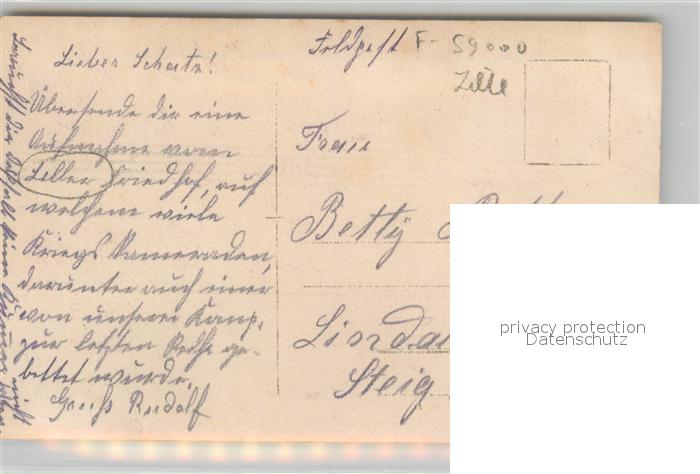 Feldpost F- 59000
Lille
Lieber Schatz!
Übersende dir eine
Aufnahme vom
Liller Friedhof, auf
welchem viele
Kriegskameraden,
darunter auch einer
von unserer Komp.
zur letzten Ruhe ge-
bettet wurde.
Gruß Rudolf
Frau
Betty
Lindau
Steig
privacy protection
Datenschutz